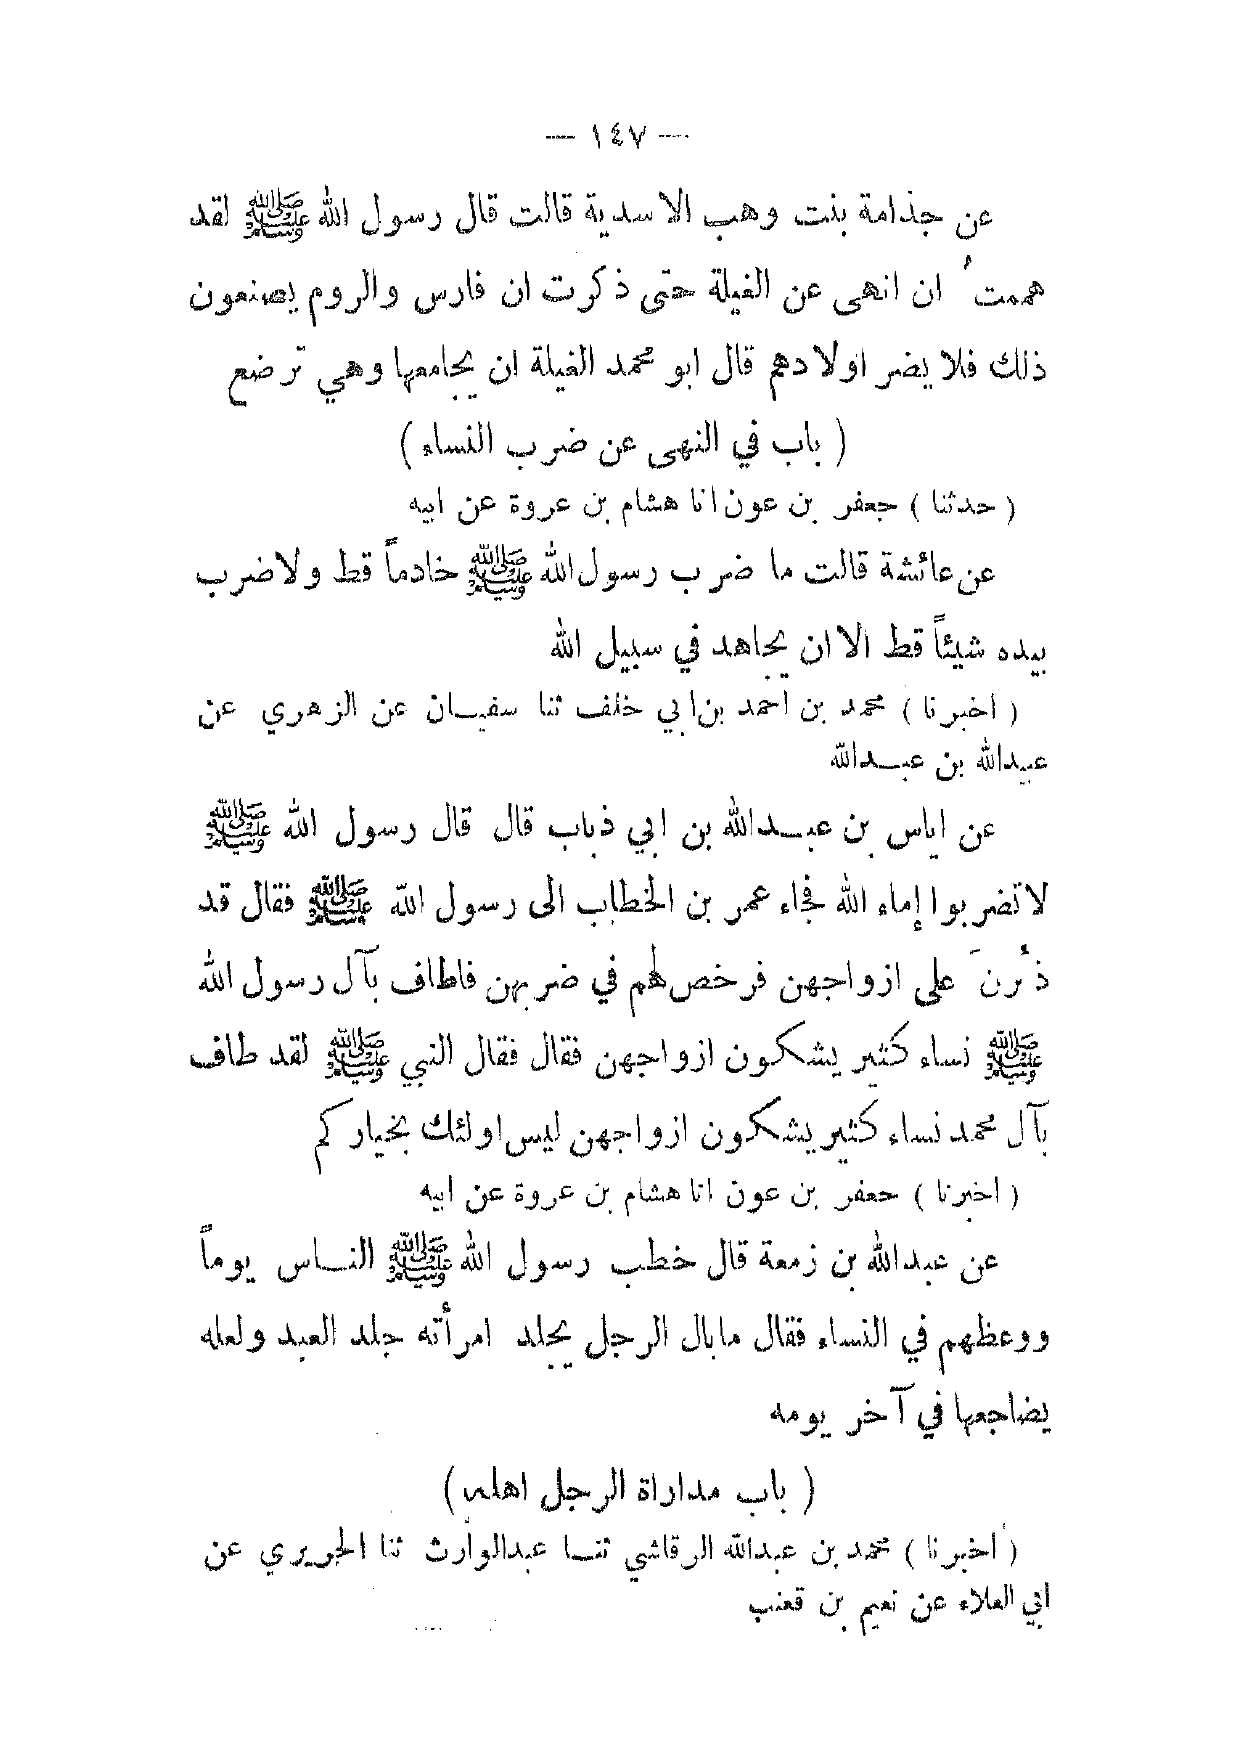 — ١٤٧ —
عن جذامة بنت وهب الاسدية قالت قال رسول الله ﷺ لقد
هممتُ ان انهى عن الغيلة حتى ذكرت ان فارس والروم يصنعون
ذلك فلا يضر اولادهم قال ابو محمد الغيلة ان يجامعها وهي ترضع
( باب في النهى عن ضرب النساء )
( حدثنا ) جعفر بن عون انا هشام بن عروة عن ابيه
عن عائشة قالت ما ضرب رسول الله ﷺ خادماً قط ولا ضرب
بيده شيئاً قط الا ان يجاهد في سبيل الله
( اخبرنا ) محمد بن احمد بن ابي خلف ثنا سفيـان عن الزهري عن
عبيدالله بن عبـدالله
عن اياس بن عبـدالله بن ابي ذباب قال قال رسول الله ﷺ
لاتضربوا إماء الله فجاء عمر بن الخطاب الى رسول الله ﷺ فقال قد
ذئرنَ على ازواجهن فرخص لهم في ضربهن فاطاف بآل رسول الله
ﷺ نساء كثير يشكون ازواجهن فقال فقال النبي ﷺ لقد طاف
بآل محمد نساء كثير يشكون ازواجهن ليس اولئك بخياركم
( اخبرنا ) جعفر بن عون انا هشام بن عروة عن ابيه
عن عبدالله بن زمعة قال خطب رسول الله ﷺ النـاس يوماً
ووعظهم في النساء فقال مابال الرجل يجلد امرأته جلد العبد ولعله
يضاجعها في آخر يومه
( باب مداراة الرجل اهله )
( اخبرنا ) محمد بن عبدالله الرقاشي ثنـا عبدالوارث ثنا الجريري عن
ابي العلاء عن نعيم بن قعنب